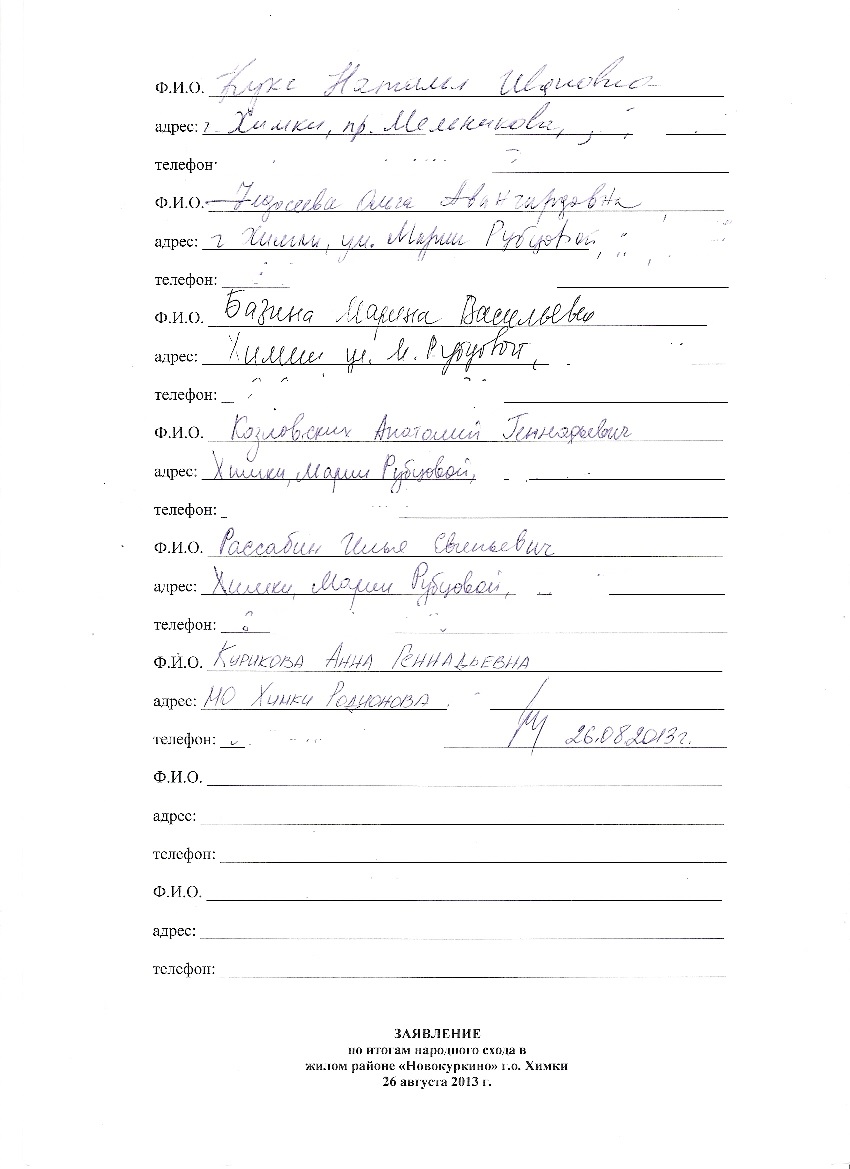 Ф.И.О. Кукс Наталия Ивановна
адрес: г. Химки, пр. Мельникова,
телефон:
Ф.И.О. Федосеева Ольга Авангардовна
адрес: г Химки, ул. Марии Рубцовой,
телефон:
Ф.И.О. Базина Марина Васильевна
адрес: Химки ул. М. Рубцовой,
телефон:
Ф.И.О. Козловских Анатолий Геннадьевич
адрес: Химки, Марии Рубцовой,
телефон:
Ф.И.О. Рассабин Илья
адрес: Химки, Марии Рубцовой,
телефон:
Ф.И.О. Курикова Анна Геннадьевна
адрес: МО Химки Родионова
телефон: 26.08.2013г.
Ф.И.О.
адрес:
телефон:
Ф.И.О.
адрес:
телефон:
ЗАЯВЛЕНИЕ
по итогам народного схода в
жилом районе «Новокуркино» г.о. Химки
26 августа 2013 г.